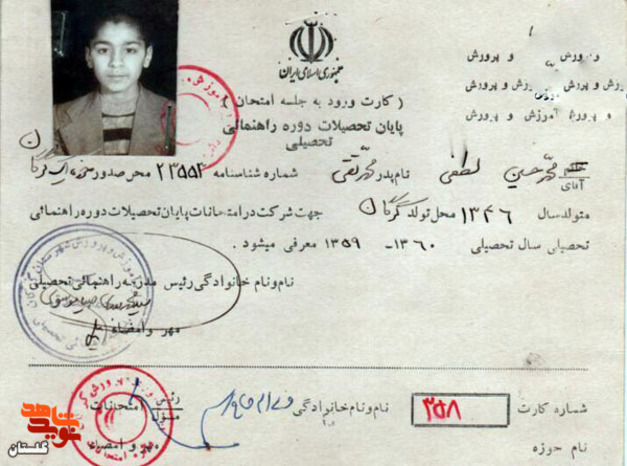 جمهوری اسلامی ایران
وزارت آموزش و پرورش
و پرورش
آموزش و پرورش
( کارت ورود به جلسه امتحان )
پایان تحصیلات دوره راهنمائی
تحصیلی
آقای محمد حسین لطفی نام پدر محمد تقی شماره شناسنامه ۲۳۵۵۲ محل صدور گرگان
متولد سال ۱۳۴۶ محل تولد گرگان جهت شرکت در امتحانات پایان تحصیلات دوره راهنمائی
تحصیلی سال تحصیلی ۱۳۶۰ - ۱۳۵۹ معرفی میشود .
نام و نام خانوادگی رئیس مدرسه راهنمائی تحصیلی
مهر و امضاء
شماره کارت ۳۵۸ نام و نام خانوادگی رئیس مسئول امتحانات
نام حوزه مهر و امضاء
شاهد
نوید
گلستان